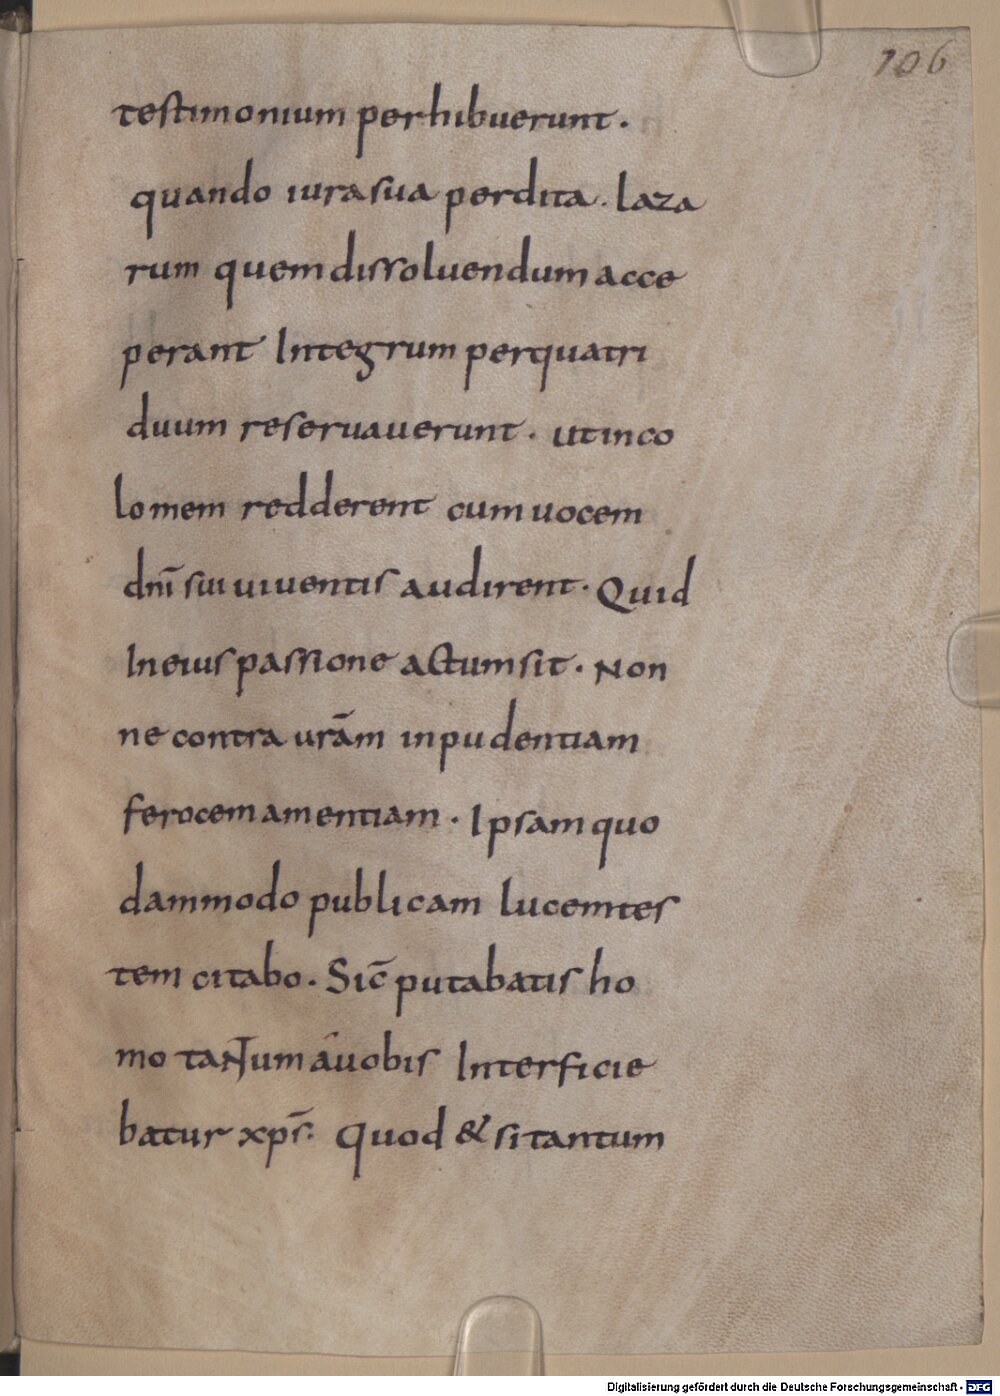 106
testimonium perhibuerunt.
quando iura sua perdita. laza
rum quem dissoluendum acce
perant Integrum per quatri
duum reseruauerunt. ut inco
lomem redderent cum uocem
dn̄i sui uiuentis audirent. Quid
In eius passione actum sit. Non
ne contra ur̄am inpudentiam
ferocem amentiam. Ipsam quo
dammodo publicam lucem tes
tem citabo. Sic̄ putabatis ho
mo tantum áuobis Interficie
batur xp̄s. Quod & si tantum
Digitalisierung gefördert durch die Deutsche Forschungsgemeinschaft - DFG